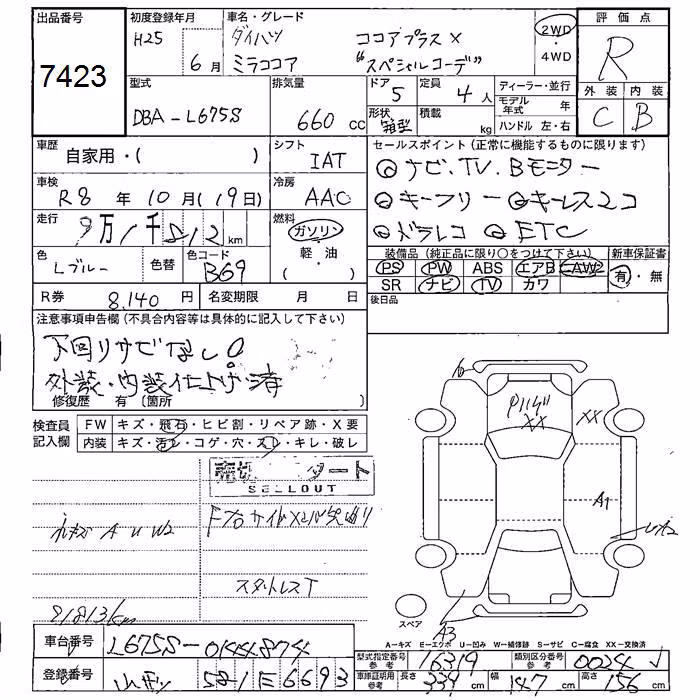 出品番号 初度登録年月 車名・グレード 評価点
7423 H25 6月 ダイハツ ココアプラスX 2WD ・ 4WD R
ミラココア "スペシャルコーデ"
型式 排気量 ドア 定員 ディーラー・並行 外装 内装
DBA-L675S 660 cc 5 4人 モデル年式 年 C B
形状 箱型 積載 kg ハンドル 左・右
車歴 自家用・( ) シフト IAT セールスポイント(正常に機能するものに限ります)
◎ナビ.TV.Bモニター
車検 R8年10月(19日) 冷房 AAC ◎キーフリー ◎キーレス2コ
走行 9万1千812km 燃料 ガソリン ・ 軽油 ( ) ◎ドラレコ ◎ETC
色 Lブルー 色替 色コード B69 装備品(純正品に限り○をつけて下さい) 新車保証書
PS PW ABS エアB AW 有・無
SR ナビ TV カワ
R券 8,140円 名変期限 月 日 後日品
注意事項申告欄(不具合内容等は具体的に記入して下さい)
下回りサビなし
外装・内装仕上げ済
修復歴 有(箇所
検査員記入欄 FW キズ・飛石・ヒビ割・リペア跡・X要
内装 キズ・汚レ・コゲ・穴・スレ・キレ・破レ
タート
SELLOUT
A U W2
スタットレスT
91813km
6
XX
XX
A1
A3
スペア
A-キズ E-エクボ U-凹み W-補修跡 S-サビ C-腐食 XX-交換済
車台番号 L675S-0144874 型式指定番号 参考 16319 類別区分番号 参考 0024
登録番号 581 E 6693 車庫証明用 参考 長さ 339 cm 幅 147 cm 高さ 156 cm